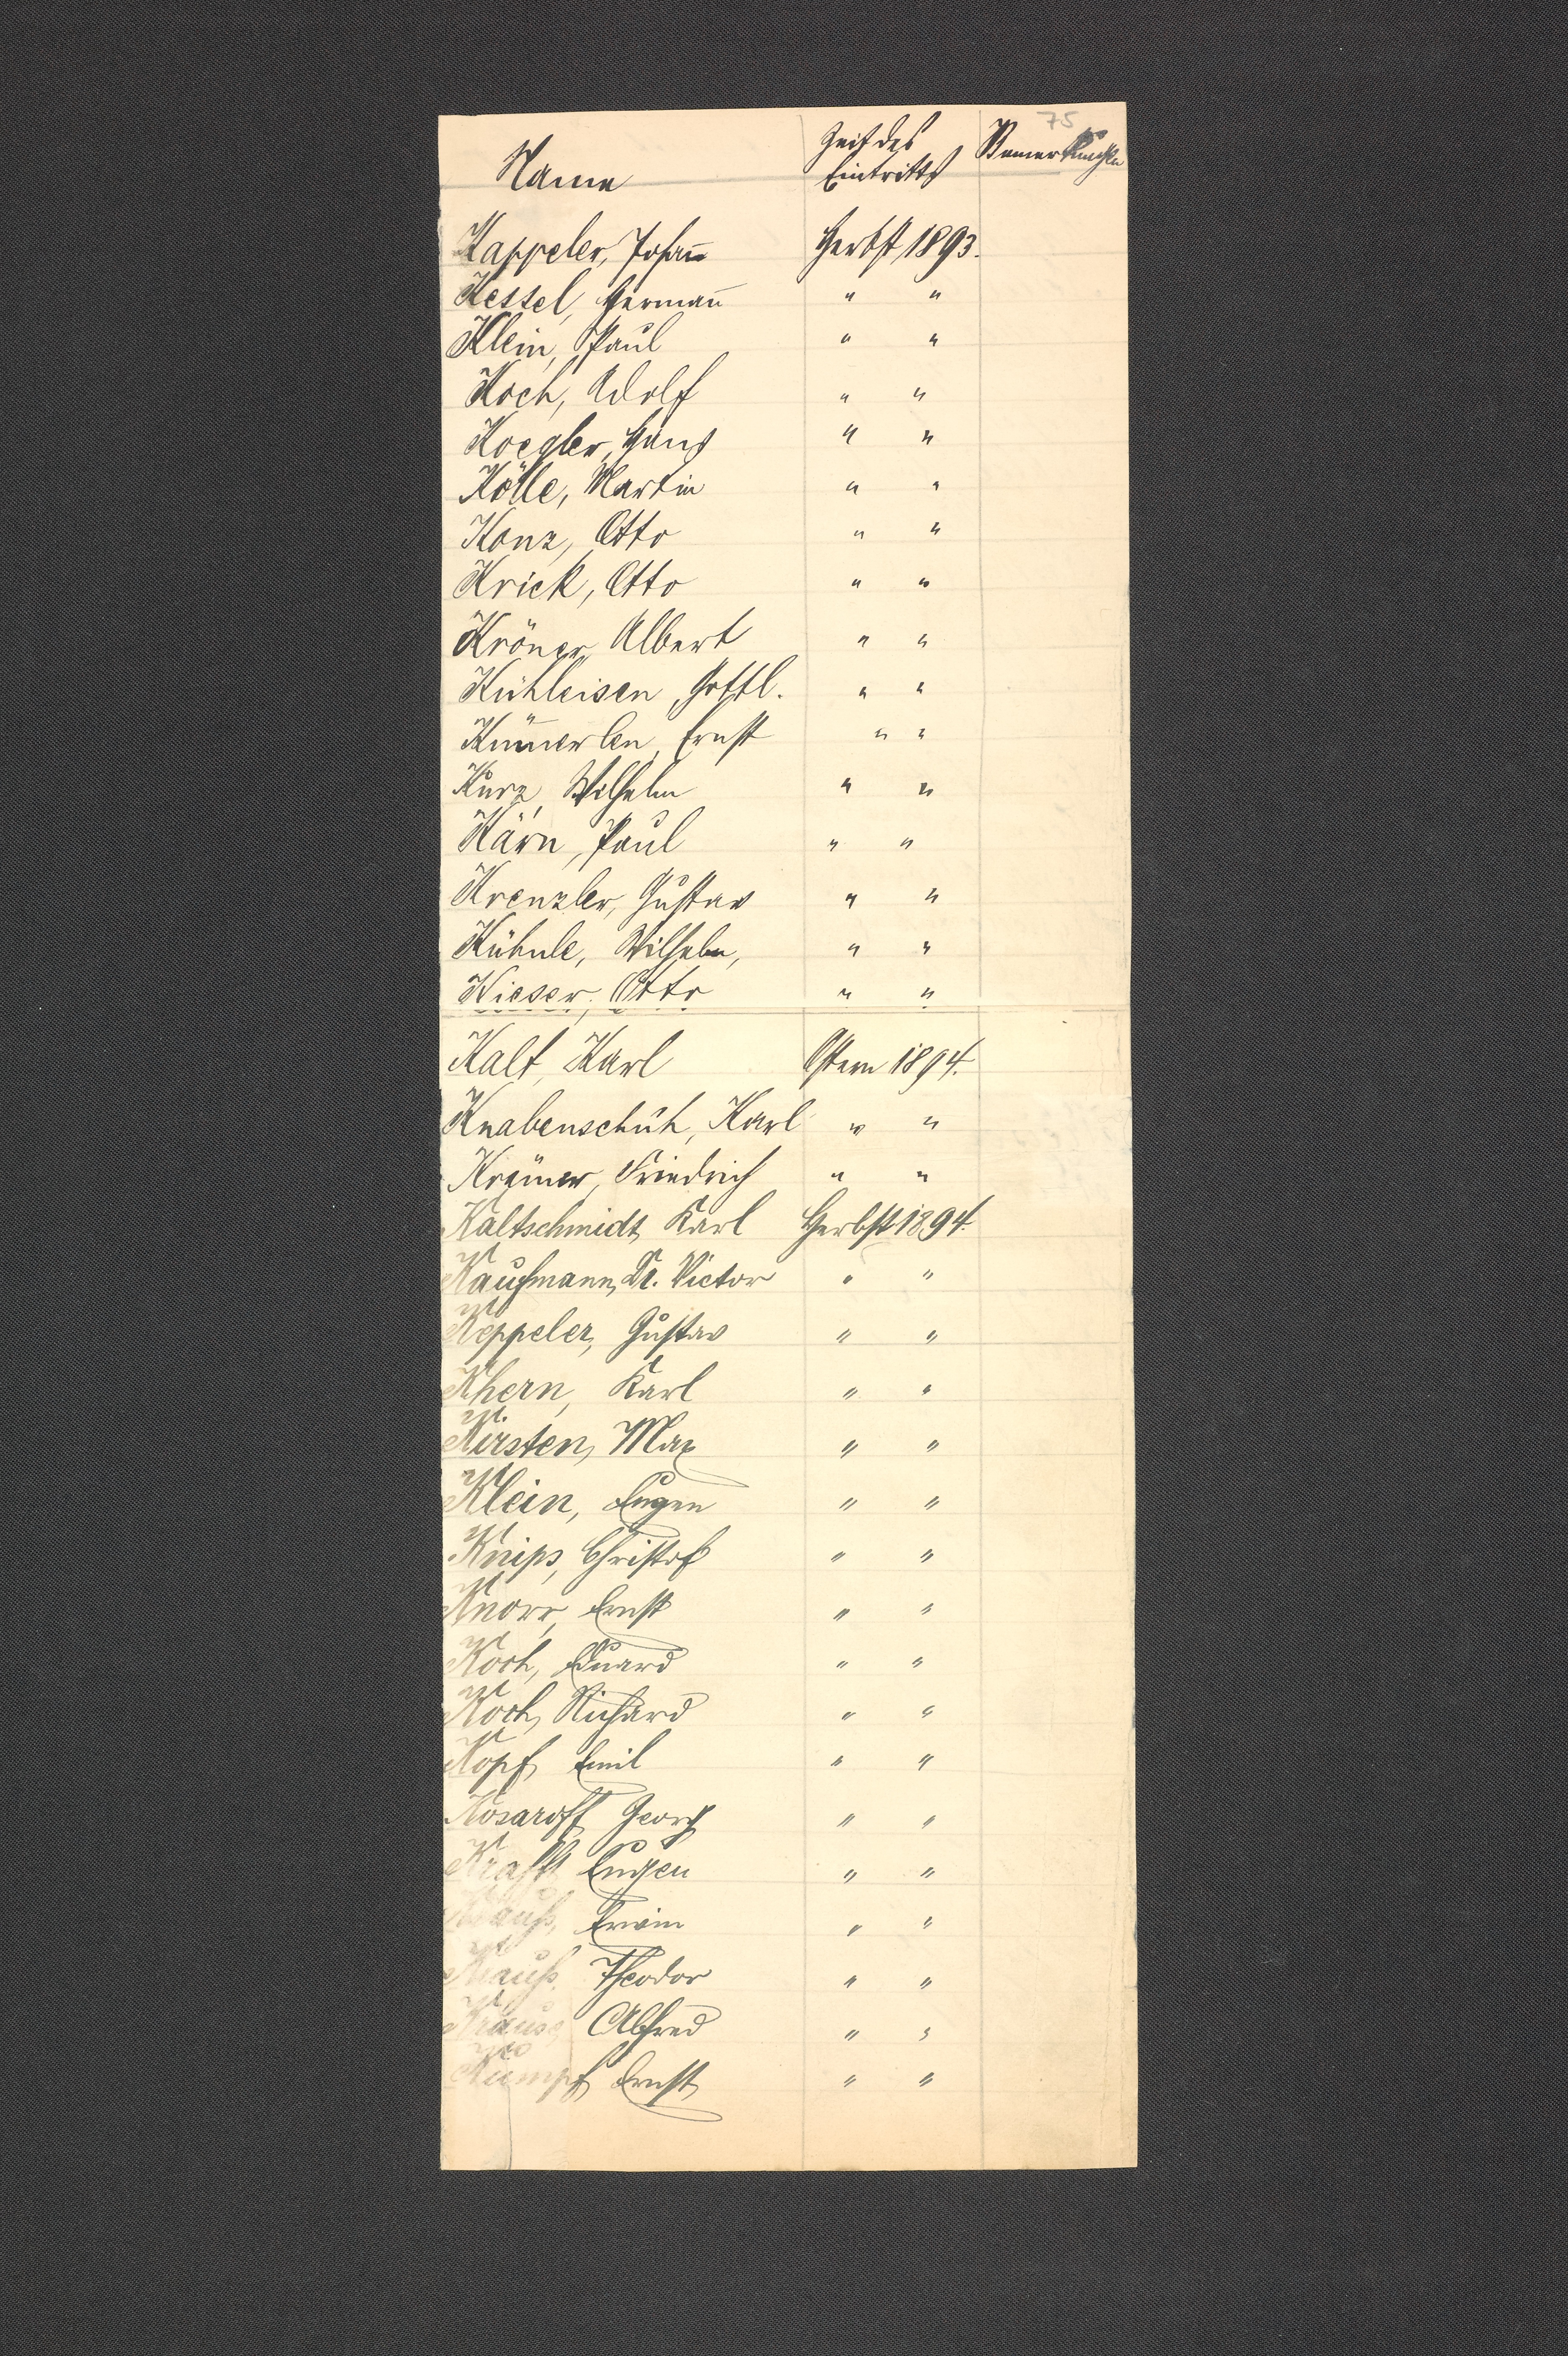 75
Name Zeit des Eintritts Bemerkungen
Kappeler, Johan̅ Herbst 1893.
Kessel, Herman̅ " "
Klein, Paul " "
Koch, Adolf " "
Koegler, Hans " "
Kölle, Martin " "
Konz, Otto " "
Krick, Otto " "
Kröner, Albert " "
Kühleisen, Gottl. " "
Küm̅erlen, Ernst " "
Kurz, Wilhelm " "
Kärn, Paul " "
Krenzler, Gustav " "
Kühnle, Wilhelm, " "
Kieser, Otto " "
Kalt, Karl Ostern 1894.
Knabenschuh, Karl " "
Krämer, Friedrich " "
Kaltschmidt, Karl Herbst 1894.
Kaufmann, Dr. Victor " "
Keppeler, Gustav " "
Khern, Karl " "
Kirsten, Max " "
Klein, Eugen " "
Knips, Christof " "
Knorr, Ernst " "
Koch, Eduard " "
Koch, Richard " "
Kopf, Emil " "
Kosaroff, Georg " "
Krafft, Eugen " "
Krauß, Erwin " "
Krauß, Theodor " "
Krause, Alfred " "
Kumpf, Ernst " "